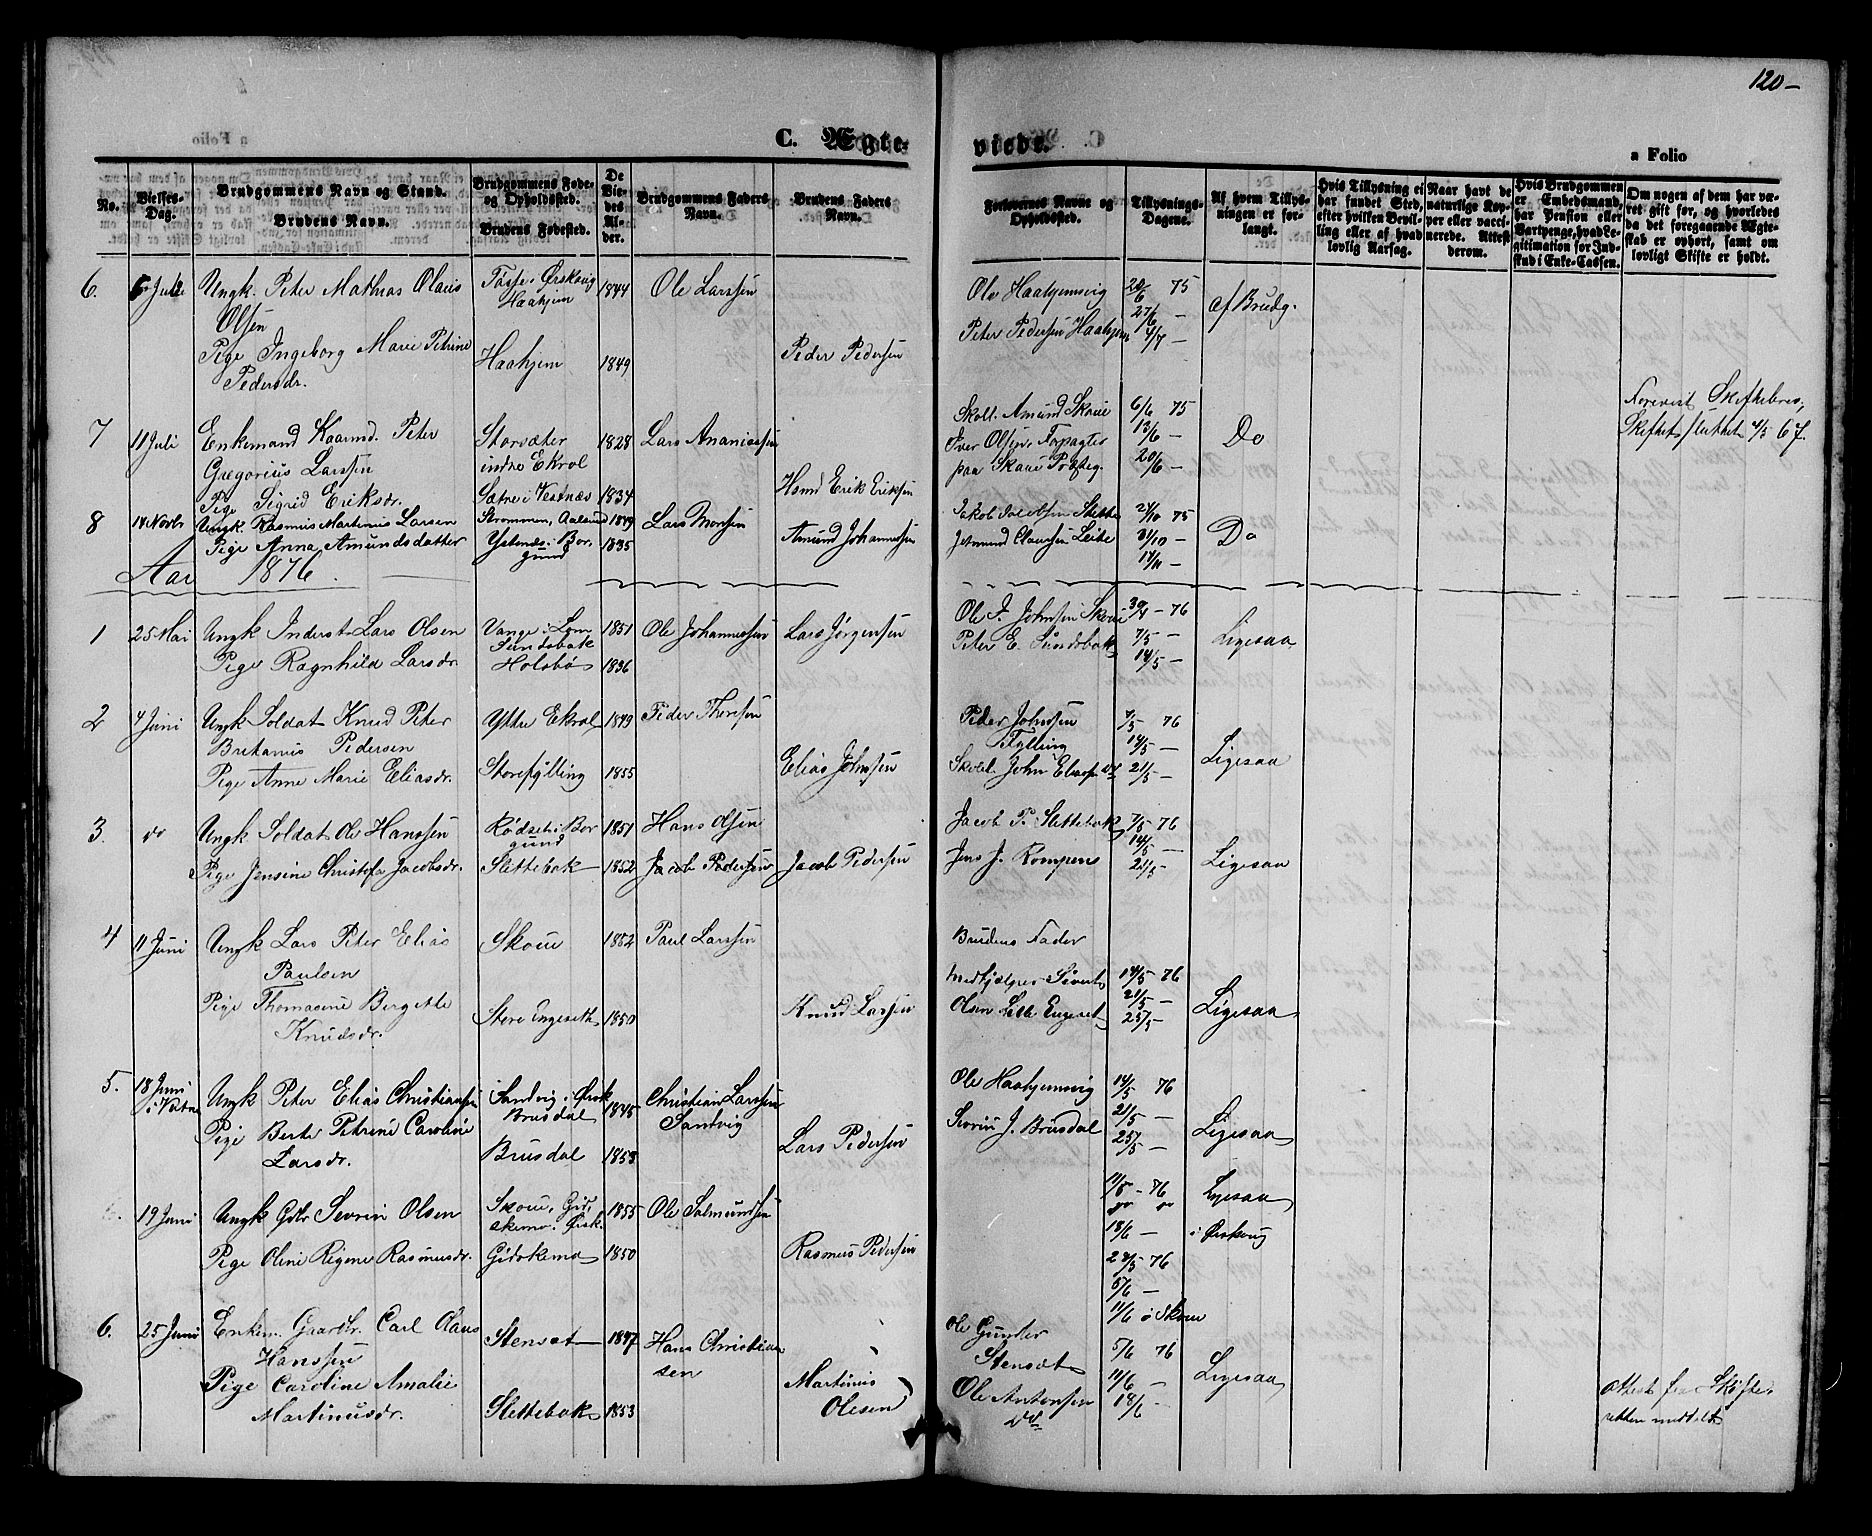 120-
C. Ægte-
viede.
a Folio
No.
Vielses-Dag.
Brudgommens Navn og Stand.
Brudens Navn.
Brudgommens Føde- og Opholdssted.
Brudens Fødested.
De Viedes Alder.
Brudgommens Faders Navn.
Brudens Faders Navn.
Forlovernes Navne og Opholdssted.
Tillysnings-Dagene.
Af hvem Tillysningen er forlangt.
Hvis Tillysning ei har fundet Sted, efter hvilken Bevilling eller af hvad lovlig Aarsag.
Naar havt de naturlige Kopper eller vaccinerede. Attest derom.
Hvis Brudgommen er Embedsmand, har Pension eller Vartpenge, hvad Legitimation for Indskud i Enke-Cassen.
Om nogen af dem har været gift før, og hvorledes da det foregaaende Ægteskab er ophørt, samt om lovligt Skifte er holdt.
6. Juli Ungk. Peter Mathias Olaus
Olsen
Haahjem 1844 Ole Larssen
Pige Ingeborg Marie Petrine
Pedersdr.
Haahjem 1849 Peder Pedersen
Ole Haahjemsvig 20/6 75
27/6 -
Peter Pedersen Haahjem 4/7 -
af Brudg.
7 11 Juli Enkemand Kaarmd. Peter
Gregorius Larssen
Storsæter
indre Ekrol 1828 Lars Ananiassen
Pige Sigrid Eriksdr. Sætre i Vestnæs 1834 Hsmd Erik Eriksen
Skoll. Amund Skoue 6/6 75
Iver Olsen 13/6 -
paa Skoue Præsteg. 20/6 -
Do
Skiftet sluttet 4/5 67.
8 14 Novbr Ungk Rasmus Martinus Larsen Strømmen, Aalesund 1849 Lars Monsen
Pige Anna Amundsdatter Ystenæs i Bor-
gund 1835 Amund Johannessen
Jakob Jacobsen Slette 24/10 75
Jetmund Claussen Leite 31/10 -
Do
Aar 1876.
1 25 Mai Ungk Inderst Lars Olsen Vange i Lom
Sundsbak 1851 Ole Johannessen Lars Jørgensen
Pige Ragnhild Larsdr. Holsbø 1836
Ole J. Johnsen Skoue 30/4 - 76
Peter E. Sundsbak 7/5 -
14/5 -
Ligesaa
2 4 Juni Ungk Soldat Knud Peter
Bretanus Pedersen
Yttre Ekrol 1849 Peder Thorsen
Pige Anne Marie Eliasdr. Storefylling 1855 Elias Johnsen
Peder Johnsen
Fylling
7/5 76
14/5 -
21/5 -
Ligesaa
3. do Ungk Soldat Ole Hanssen Rødset i Bor
gund 1851 Hans Olsen
Pige Jensine Christofa Jacobsdr. Slettebak 1852 Jacob Pedersen Jacob Pedersen
Jacob P. Slettebak 7/5 76
14/5 -
Jens J. Rompen 21/5 -
Ligesaa
4 11 Juni Ungk Lars Peter Elias
Paulsen
Skoue 1852 Paul Larssen
Pige Thomasine Bergitte
Knudsdr.
Store Engeseth 1850 Knud Larssen
Brudens Fader
Medhjælper Sivert
Olsen Lille Engeset
14/5 76
21/5 -
25/5 -
Ligesaa
5. 18 Juni
i Vatne
Ungk Peter Elias Christiansen Sandvig i Ørsk
Brusdal 1845 Christian Larssen
Sandvig
Pige Berte Petrine Caroline
Larsdr.
Brusdal 1853 Lars Pedersen
Ole Haahjemsvig 14/5 76
21/5 -
Severin J. Brusdal 25/5 -
Ligesaa
19 Juni Ungk Gdbr Severin Olsen Skoue, Gid-
skemo i Ørsk. 1855 Ole Salmundsen
Pige Oline Regine Rasmusdr. Gidskemo 1850 Rasmus Pedersen
11/5 - 76
18/6 -
Ligesaa
i Ørskoug
28/5 76
5/6 -
11/6 i Skoue
6. 25 Juni Enkem. Gaardbr. Carl Olaus
Hanssen
Stenset 1847 Hans Christian
sen
Pige Caroline Amalie
Martinusdr.
Slettebak 1853 Martinus
Olesen
Ole Gunder
Stenset
Ole Antonsen
5/6 76
11/6 -
18/6 -
Ligesaa
Attest fra Skifte-
retten meddelt